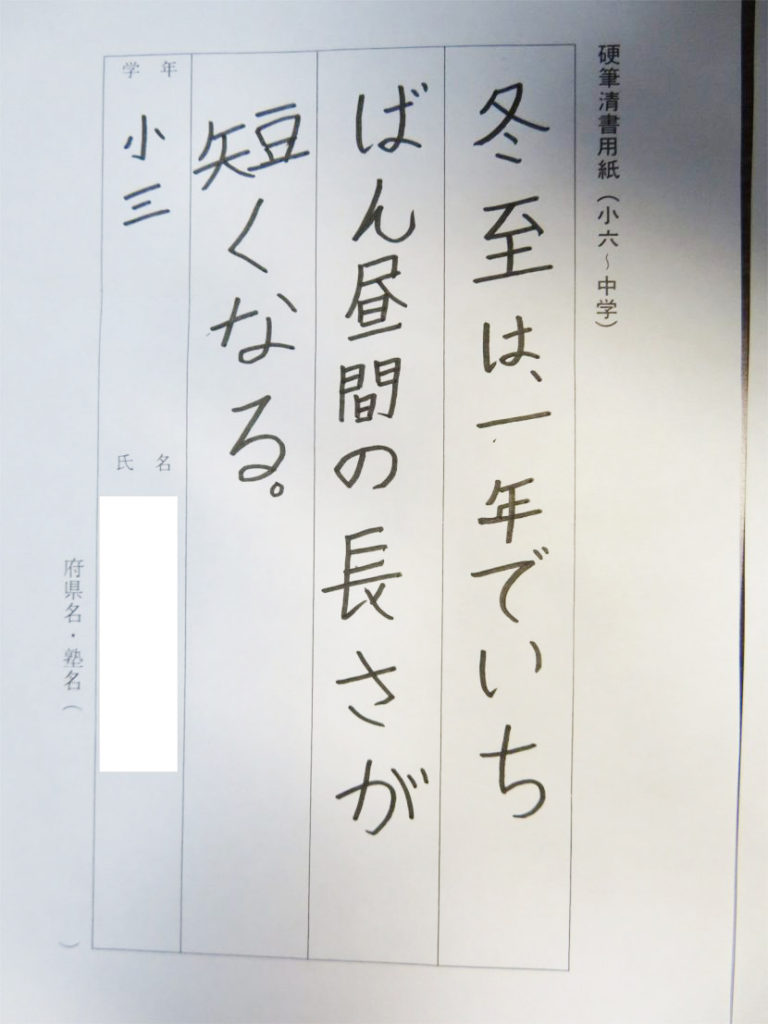 硬筆清書用紙（小六～中学）
冬至は、一年でいち
ばん昼間の長さが
短くなる。
学年
小三
氏名
府県名・塾名（　）